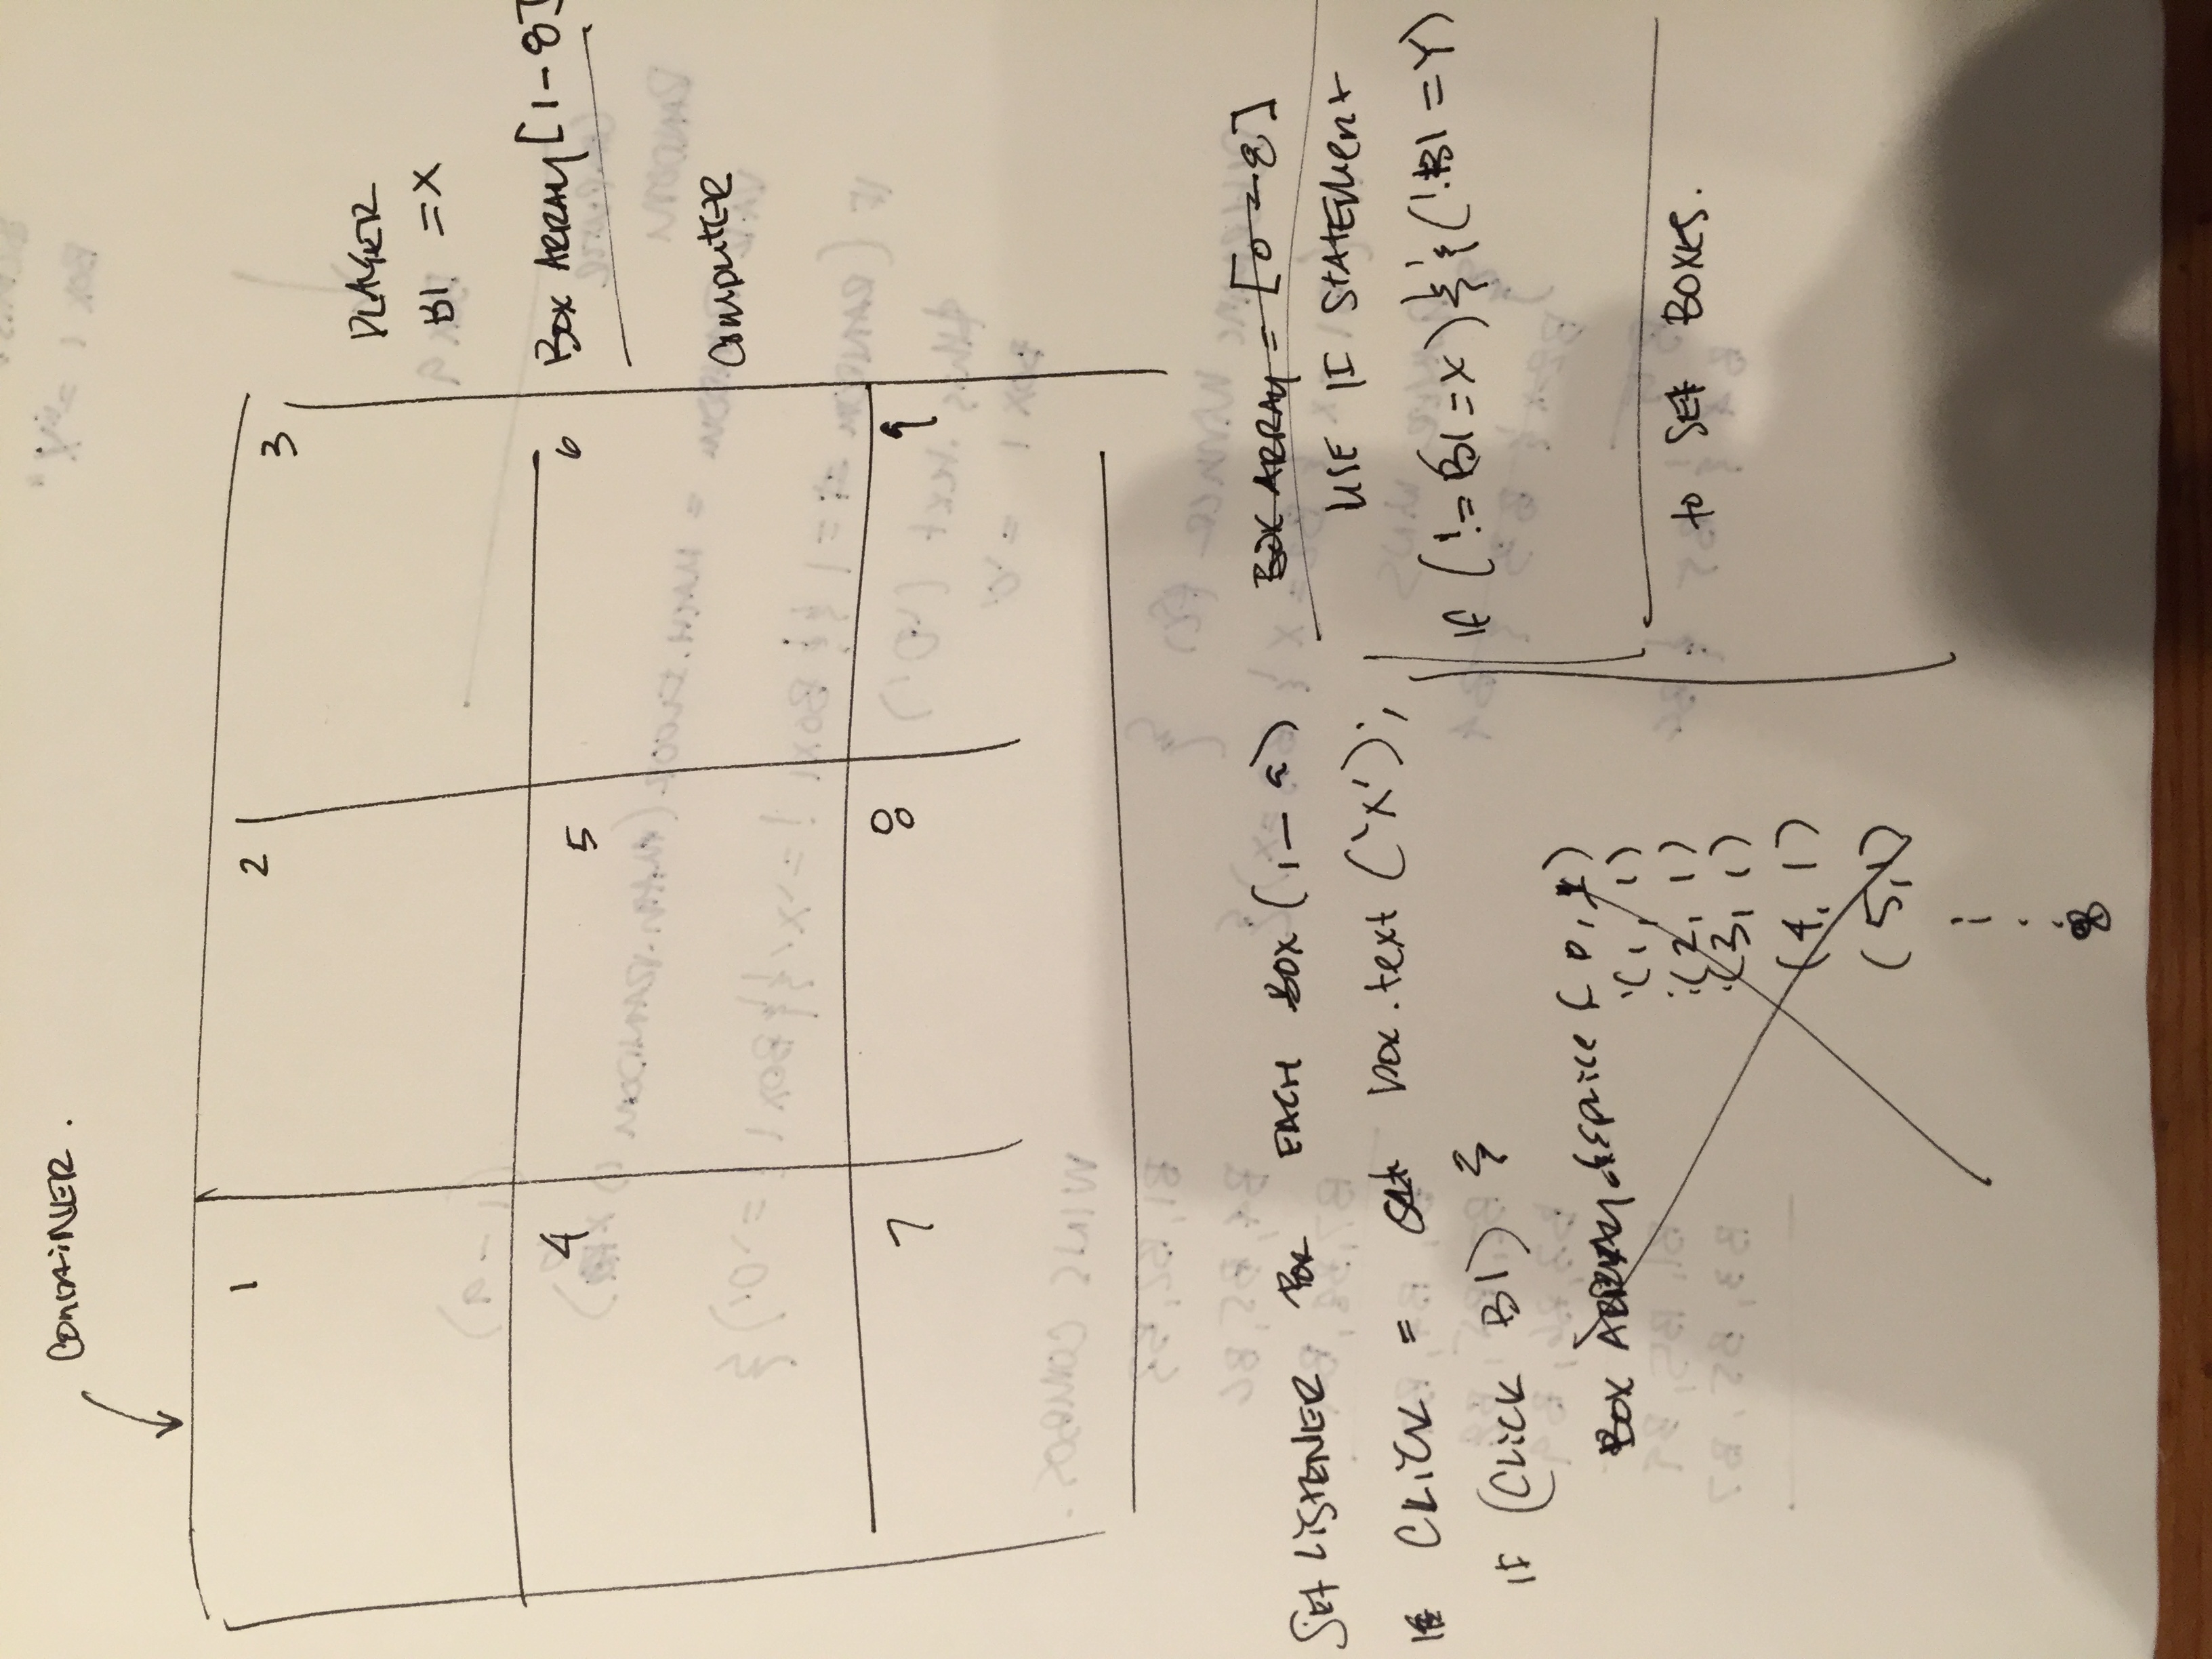 CONTAINER.
1
2
3
PLAYER
B1 = X
4
5
6
BOX ARRAY [1-8]
COMPUTER
7
8
9
SET LISTENER FOR EACH BOX (1-9)
IF CLICK = SET box.text ('X');
IF (CLICK B1) {
BOX ARRAY.splice (0, 1)
(1, 1)
(2, 1)
(3, 1)
(4, 1)
(5, 1)
8
BOX ARRAY = [0-8]
USE IF STATEMENT
IF (!= B1 = X) && (!B1 = Y)
to SET BOXES.